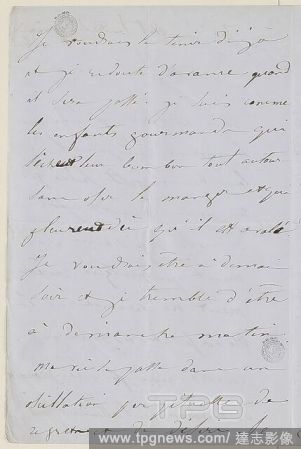 Je voudrais le tenir déjà
et je redoute d'avance quand
il sera passé je suis comme
les enfants gourmands qui
lèchent leur bonbon tout autour
sans oser le manger et qui
pleurent dès qu'il est avalé
Je voudrais être à demain
soir et je tremble d'être
à dimanche matin
ma vie se passe dans un
oscillation perpétuelle de
regret et de désir
TPG
www.tpgnews.com/達志影像